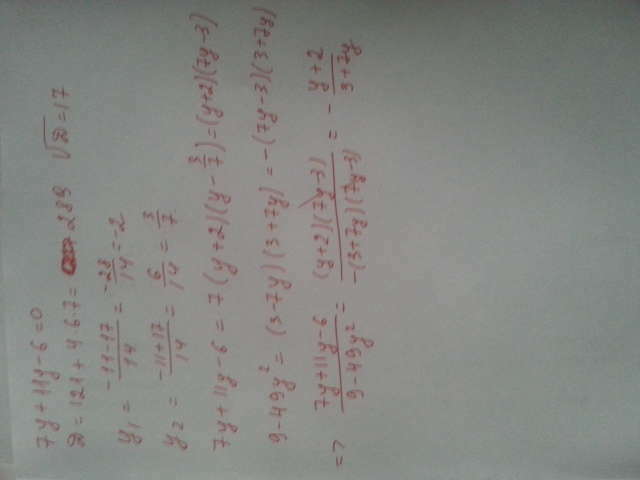 7y+11y-6=0
D=121+4·6·7=289 √D=17
y1 = (-11-17)/14 = -28/14 = -2
y2 = (-11+17)/14 = 6/14 = 3/7
7y+11y-6 = 7(y+2)(y-3/7)=(y+2)(7y-3)
9-49y² = (3-7y)(3+7y) = -(7y-3)(3+7y)
=> (7y+11y-6)/(9-49y²) = (y+2)(7y-3)/-(3+7y)(7y-3) = - (y+2)/(3+7y)